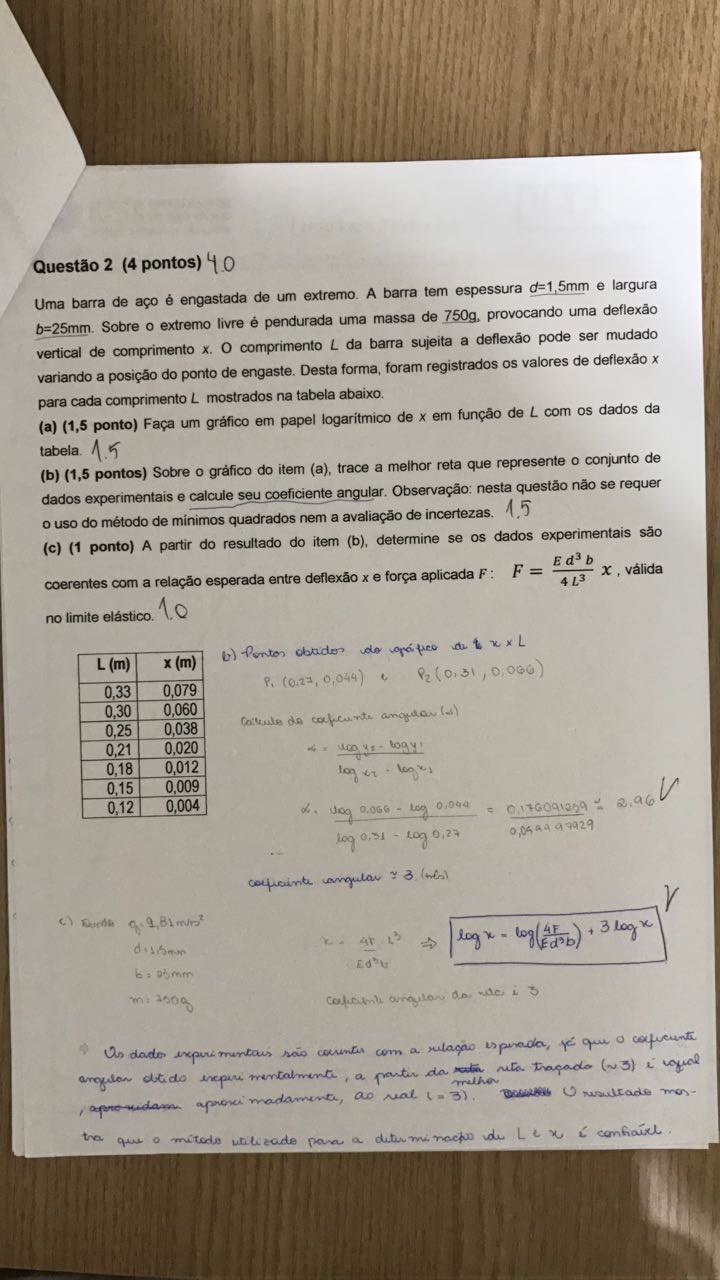 Questão 2 (4 pontos) 4.0
Uma barra de aço é engastada de um extremo. A barra tem espessura d=1,5mm e largura
b=25mm. Sobre o extremo livre é pendurada uma massa de 750g, provocando uma deflexão
vertical de comprimento x. O comprimento L da barra sujeita a deflexão pode ser mudado
variando a posição do ponto de engaste. Desta forma, foram registrados os valores de deflexão x
para cada comprimento L mostrados na tabela abaixo.
(a) (1,5 ponto) Faça um gráfico em papel logarítmico de x em função de L com os dados da
tabela. 1.5
(b) (1,5 pontos) Sobre o gráfico do item (a), trace a melhor reta que represente o conjunto de
dados experimentais e calcule seu coeficiente angular. Observação: nesta questão não se requer
o uso do método de mínimos quadrados nem a avaliação de incertezas. 1.5
(c) (1 ponto) A partir do resultado do item (b), determine se os dados experimentais são
coerentes com a relação esperada entre deflexão x e força aplicada F: F = E d³ b / 4 L³ x , válida
no limite elástico. 1.0
L (m) x (m)
0,33 0,079
0,30 0,060
0,25 0,038
0,21 0,020
0,18 0,012
0,15 0,009
0,12 0,004
b) Pontos obtidos do gráfico de x x L
P₁ (0,27, 0,044) e P₂ (0,31, 0,066)
Cálculo do coeficiente angular (α)
α = log y₂ - log y₁ / log x₂ - log x₁
α = log 0,066 - log 0,044 / log 0,31 - log 0,27 = 0,176091259 / 0,059997929 ≈ 2,96
coeficiente angular ≈ 3. (três)
c) Sendo g = 9,81 m/s²
d = 1,5mm
b = 25mm
m = 750g
x = 4F L³ / Ed³b ⇒ log x = log(4F/Ed³b) + 3 log x
coeficiente angular da reta é 3
⇒ Os dados experimentais são coerentes com a relação esperada, já que o coeficiente
angular obtido experimentalmente, a partir da melhor reta traçada (~3) é igual
, aproximadamente, ao real (=3). O resultado mos-
tra que o método utilizado para a determinação de L e x é confiável.